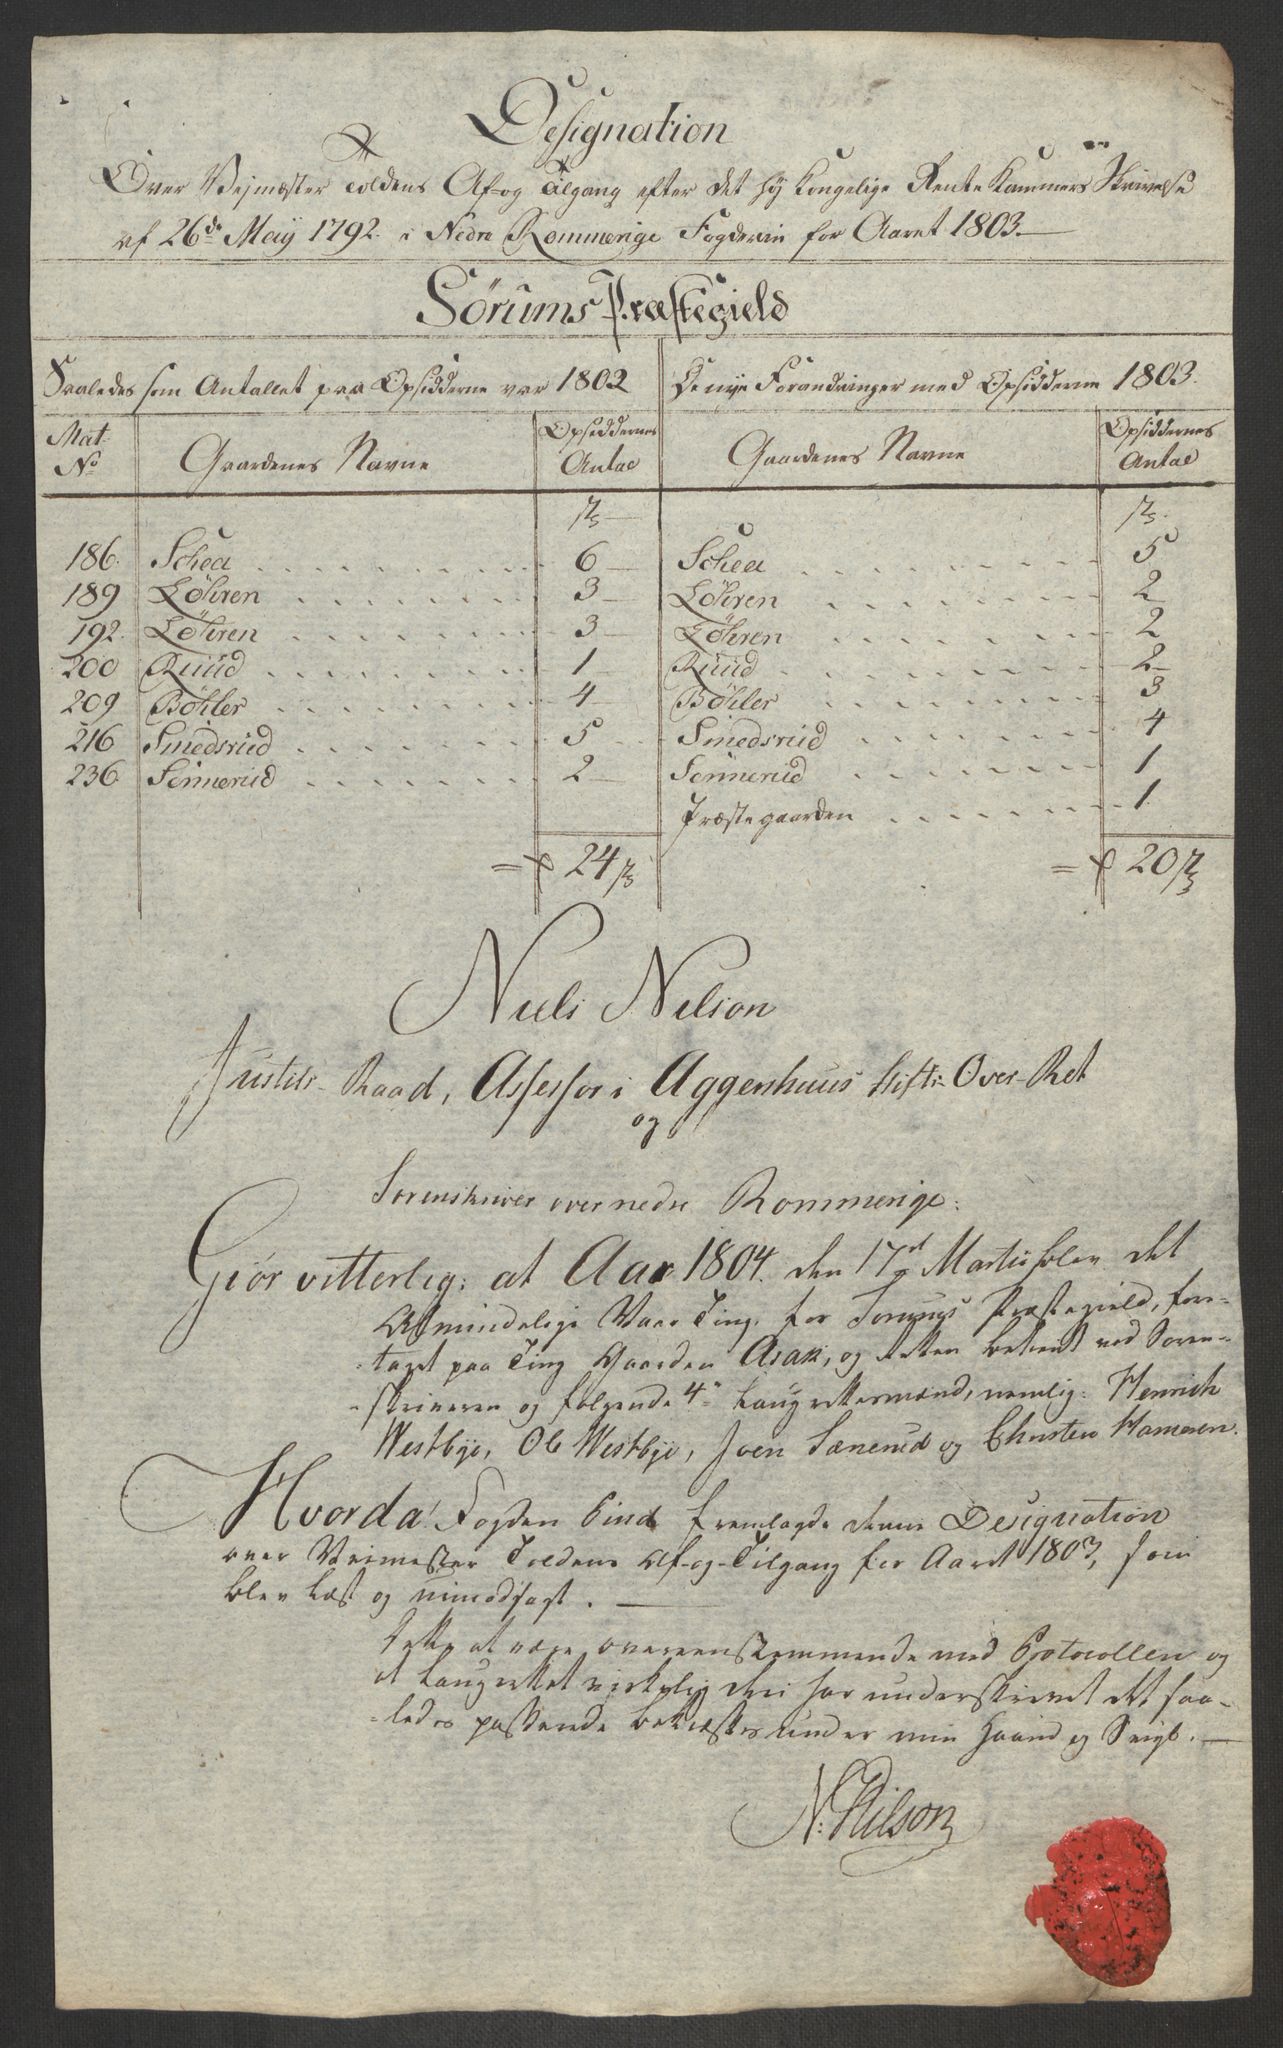 Designation
Over Vejmester Toldens Af- og Tilgang efter det høj Kongelige Rente Kammers Skrivelse
af 26de Maij 1792. i Nedre Rommerige Fogderie for Aaret 1803.
Sørums Præstegield
Saaledes som Antallet paa Opsidderne var 1802
De nye Forandringer med Opsidderne 1803.
Mat: No
Gaardenes Navne
Opsiddernes Antal
Gaardenes Navne
Opsiddernes Antal
186. Schea 6 Schea 5
189 Löhren 3 Löhren 2
192. Löhren 3 Löhren 2
200 Ruud 1 Ruud 2
209 Böhler 4 Böhler 3
216 Smedsrud 5 Smedsrud 4
236 Sennerud 2 Sennerud 1
Præstegaarden 1.
= 24 = 20
Niels Nilson
Justits-Raad, Assessor i Aggershuus Stifts-Over-Ret
og
Sorenskriver over nedre Rommerige.
Giør vitterlig: at Aar 1804. den 17de Martii blev det
Almindelige Vaar Ting for Sørums Præstegield, fore-
-taget paa Ting Gaarden Asak, og Retten betient ved Soren-
-skriveren og følgende 4re Laugrettesmænd, nemlig: Henrich
Westbye, Ole Westbye, Joen Sænerud og Christen Hameren.
Hvorda Fogden Bind fremlagde denne Designation
over Veimester Toldens Af- og Tilgang for Aaret 1803, som
blev læst og uimodsagt.
Dette at være overeensstemmende med Protocollen og
at Laugrettet virkelig den har underskrevet det saa-
-ledes passerede bekræftes under min Haand og Seigl.
N. Nilson